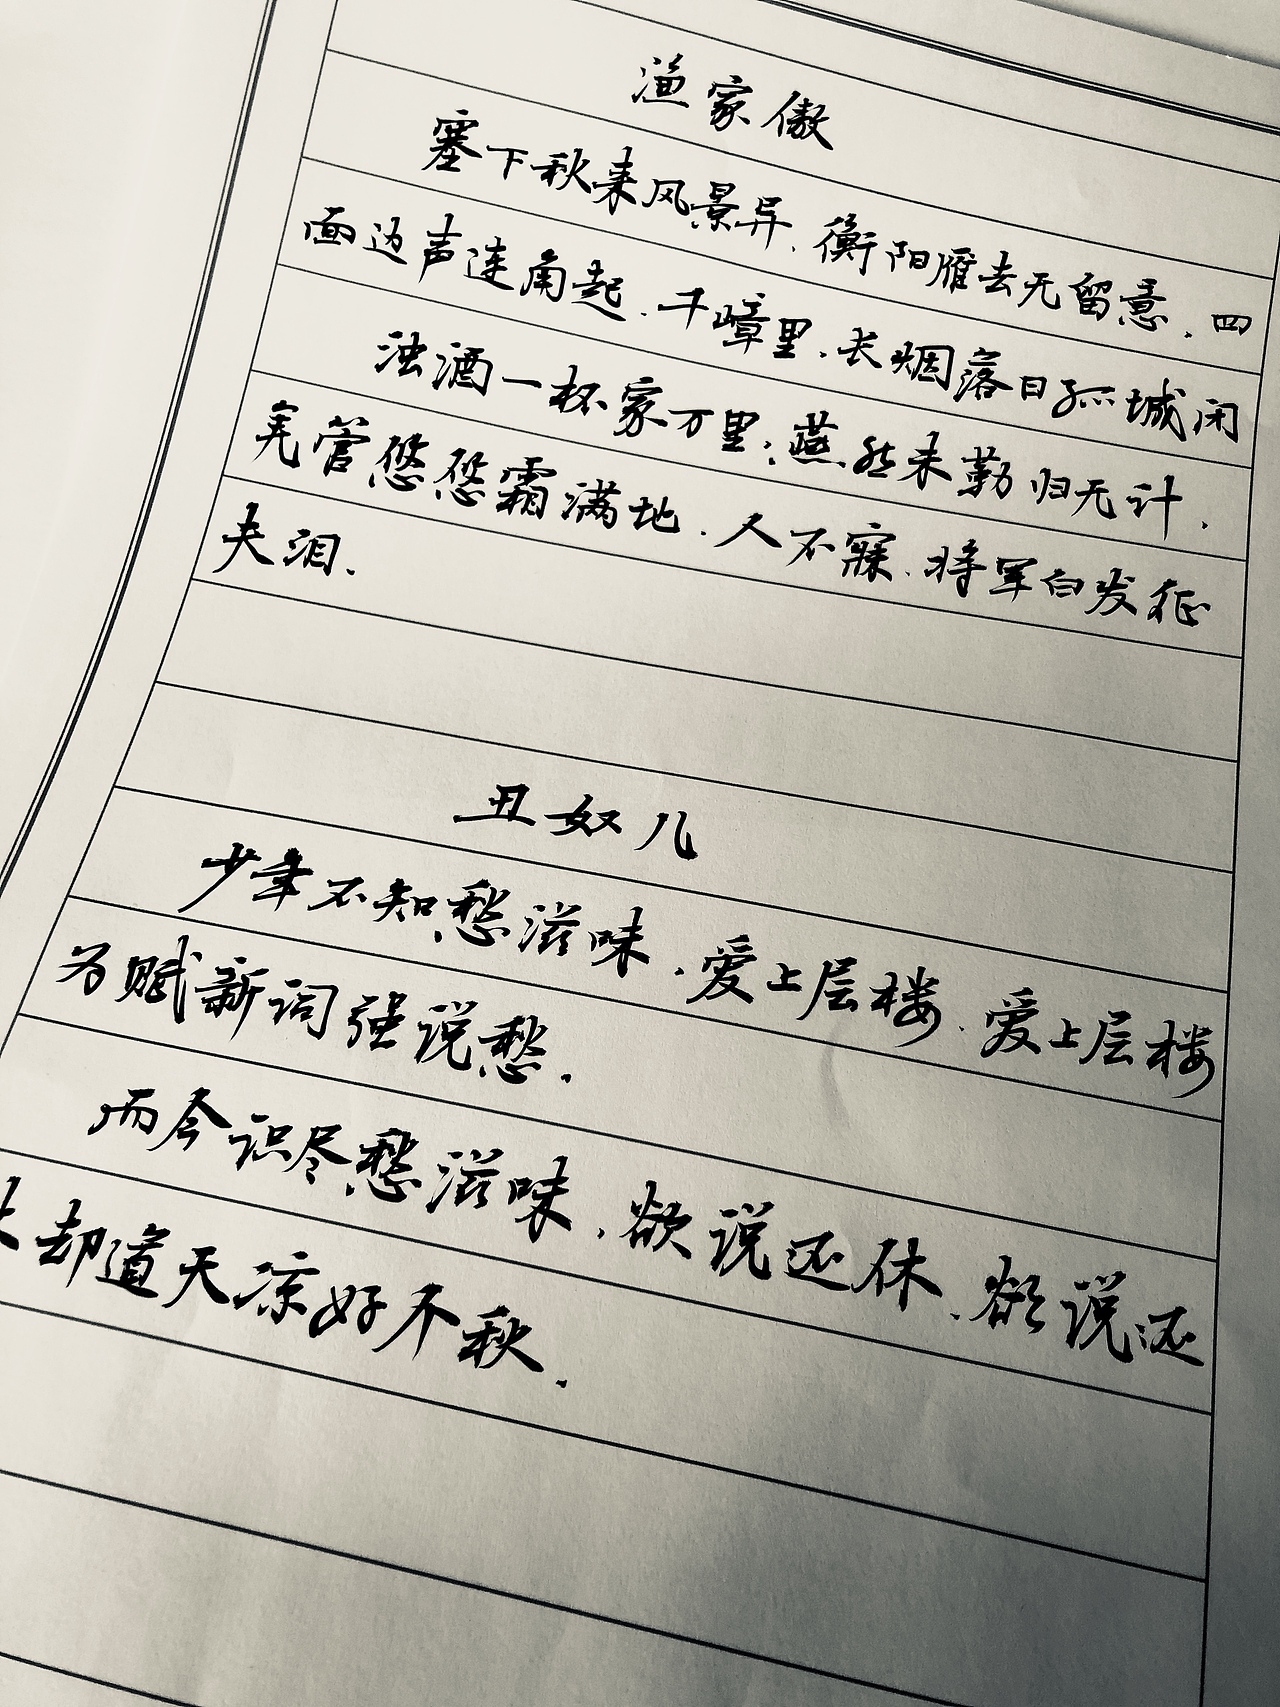 渔家傲
塞下秋来风景异.衡阳雁去无留意.四
面边声连角起.千嶂里.长烟落日孤城闭
浊酒一杯家万里.燕然未勒归无计.
羌管悠悠霜满地.人不寐.将军白发征
夫泪.
丑奴儿
少年不知愁滋味.爱上层楼.爱上层楼
为赋新词强说愁.
而今识尽愁滋味.欲说还休.欲说还
却道天凉好个秋.